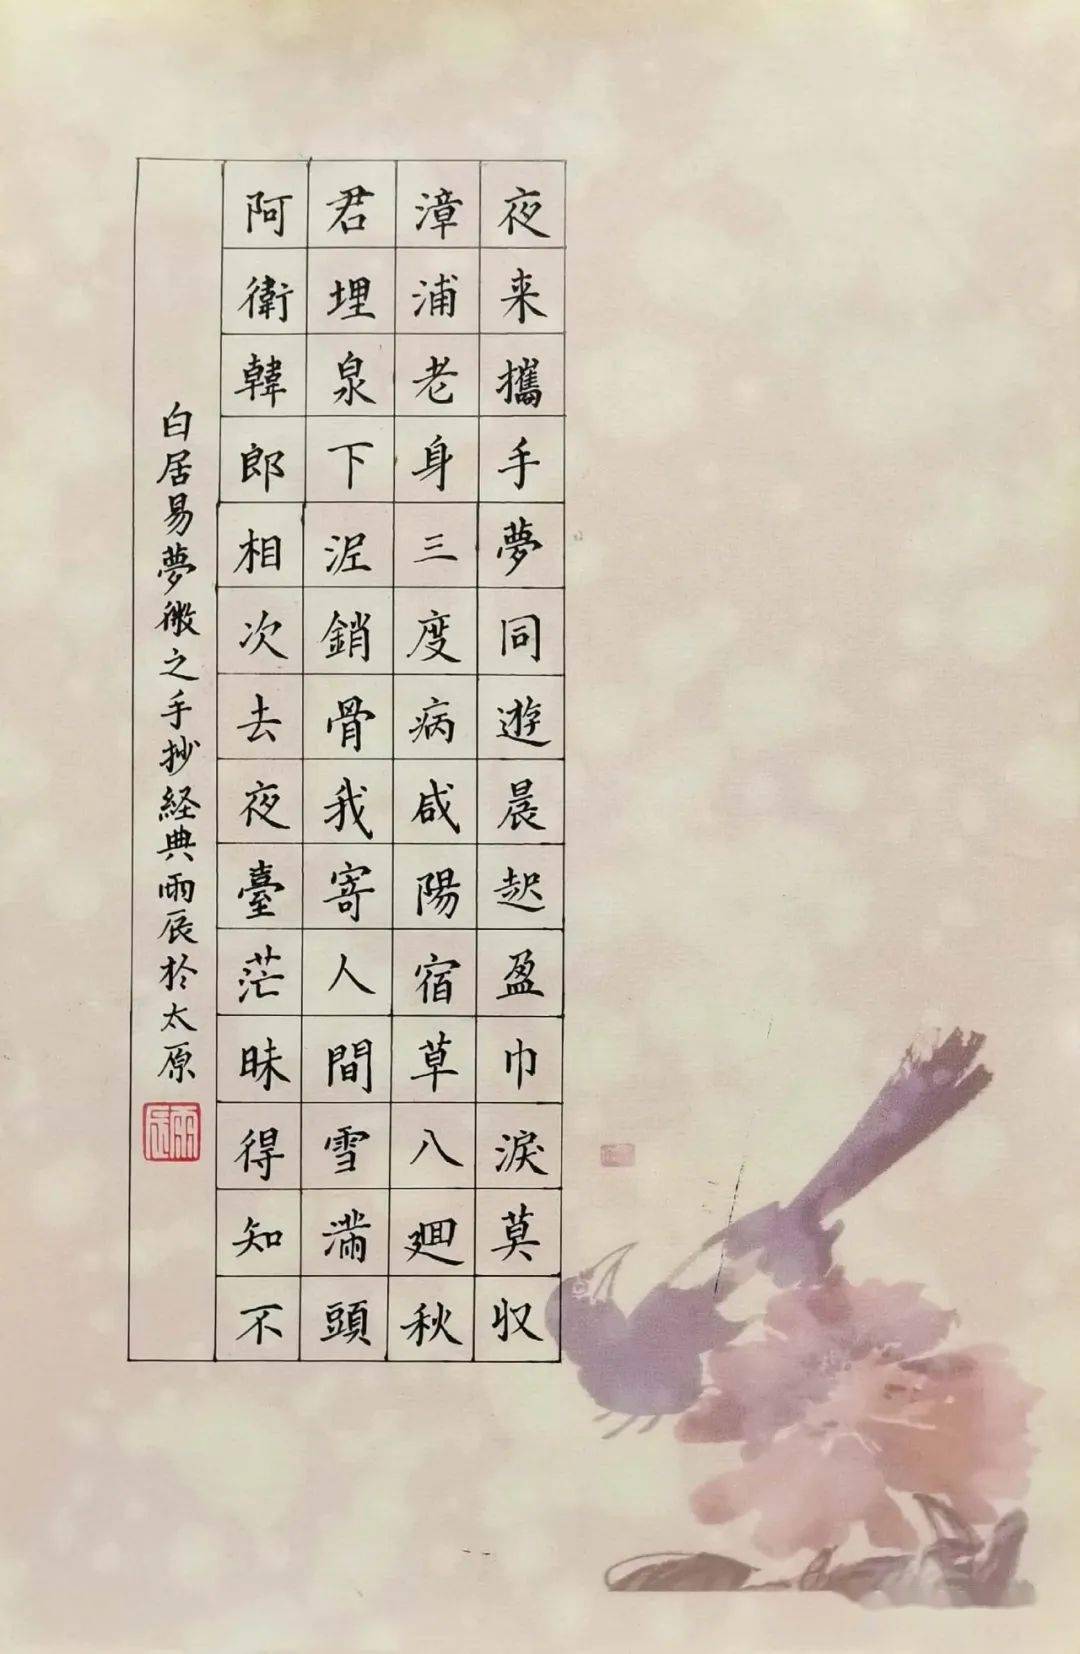 夜来攜手夢同遊晨起盈巾淚莫収
漳浦老身三度病咸陽宿草八廻秋
君埋泉下泥銷骨我寄人間雪滿頭
阿衛韓郎相次去夜臺茫昧得知不
白居易夢微之手抄経典雨辰於太原
雨辰